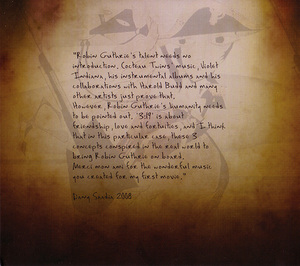 "Robin Guthrie's talent needs no
introduction, Cocteau Twins' music, Violet
Indiana, his instrumental albums and his
collaborations with Harold Budd and many
other artists just prove that.
However, Robin Guthrie's humanity needs
to be pointed out. '3:19' is about
friendship, love and fortuities, and I think
that in this particular case, these 3
concepts conspired in the real world to
bring Robin Guthrie on board.
Merci mon ami for the wonderful music
you created for my first movie."
Dany Saadia 2008